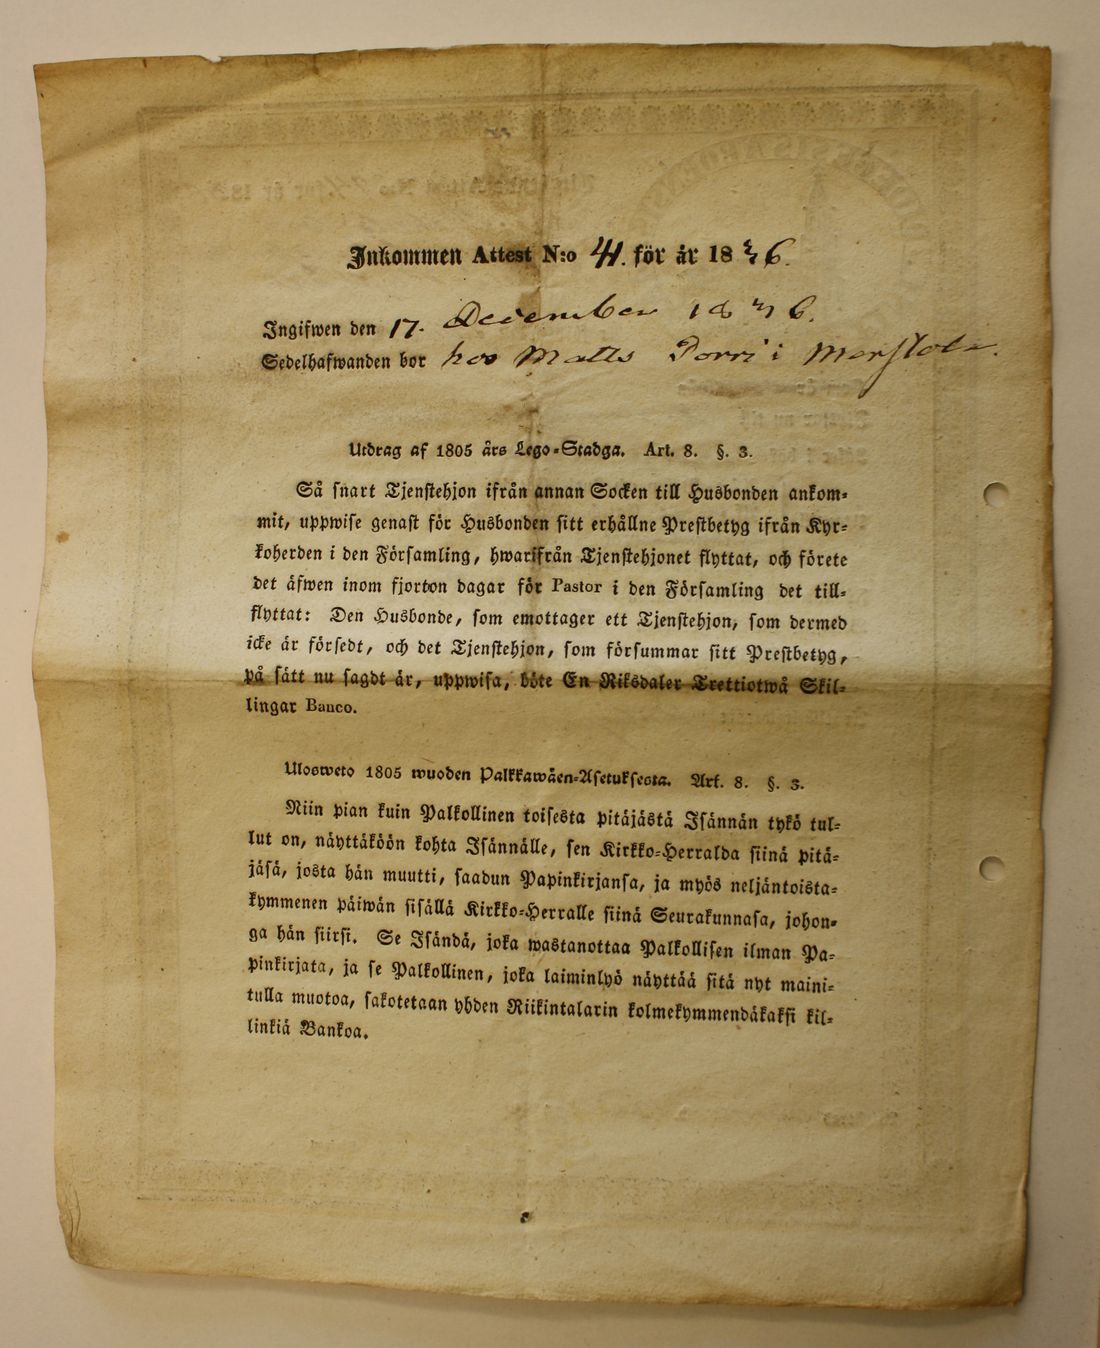 Inkommen Attest N:o 41. för år 1836.
Ingifwen den 17. December 1836.
Sedelhafwanden bor hos Matts Porri i
Utdrag af 1805 års Lego-Stadga. Art. 8. §. 3.
Så snart Tjenstehjon ifrån annan Socken till Husbonden ankom-
mit, uppwise genast för Husbonden sitt erhållne Prestbetyg ifrån Kyr-
koherden i den Församling, hwarifrån Tjenstehjonet flyttat, och förete
det äfwen inom fjorton dagar för Pastor i den Församling det till-
flyttat: Den Husbonde, som emottager ett Tjenstehjon, som dermed
icke är försedt, och det Tjenstehjon, som försummar sitt Prestbetyg,
på sätt nu sagdt är, uppwisa, böte En Riksdaler Trettiotwå Skil-
lingar Banco.
Ulosweto 1805 wuoden Palkkawäen-Asetuksesta. Art. 8. §. 3.
Niin pian kuin Palkollinen toisesta pitäjästä Isännän tykö tul-
lut on, näyttäköön kohta Isännälle, sen Kirkko-Herralda siinä pitä-
jäsä, josta hän muutti, saadun Papinkirjansa, ja myös neljäntoista-
kymmenen päiwän sisällä Kirkko-Herralle siinä Seurakunnasa, johon-
ga hän siirsi. Se Isändä, joka wastanottaa Palkollisen ilman Pa-
pinkirjata, ja se Palkollinen, joka laiminlyö näyttää sitä nyt maini-
tulla muotoa, sakotetaan yhden Riikintalarin kolmekymmendäkaksi kil-
linkiä Bankoa.